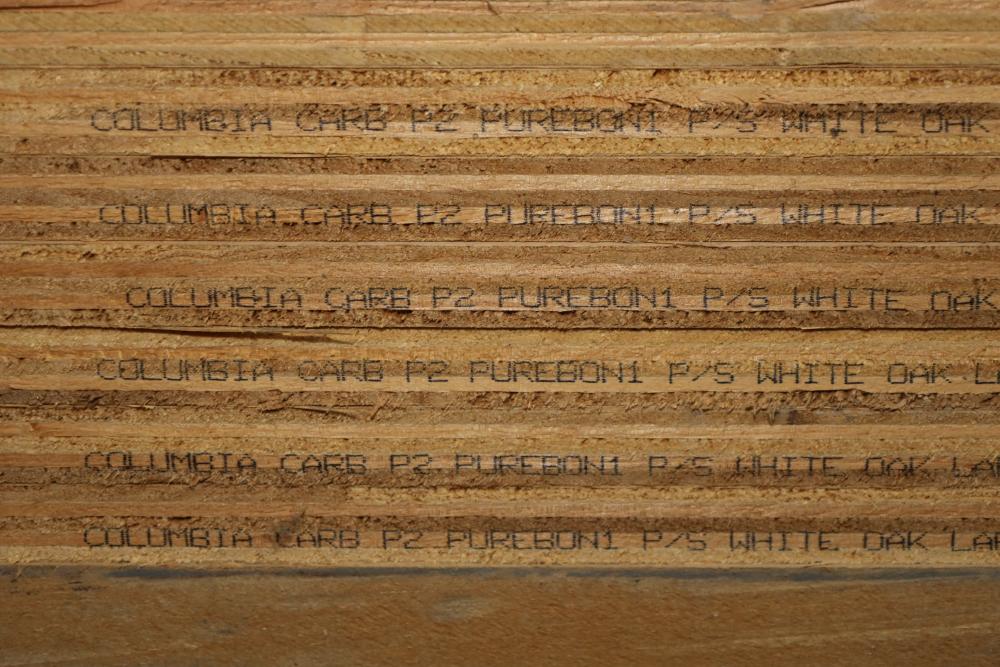 COLUMBIA CARB P2 PUREBON1 P/S WHITE OAK
COLUMBIA CARB P2 PUREBON1 P/S WHITE OAK
COLUMBIA CARB P2 PUREBON1 P/S WHITE OAK
COLUMBIA CARB P2 PUREBON1 P/S WHITE OAK
COLUMBIA CARB P2 PUREBON1 P/S WHITE OAK
COLUMBIA CARB P2 PUREBON1 P/S WHITE OAK